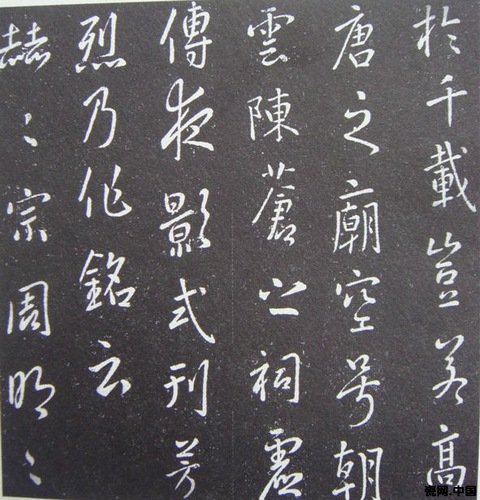 於千載豈若高
唐之廟空号朝
雲陳蒼之祠虛
傳夜影式刊芳
烈乃作銘云
赫〻宗周明〻
瓷网.中国